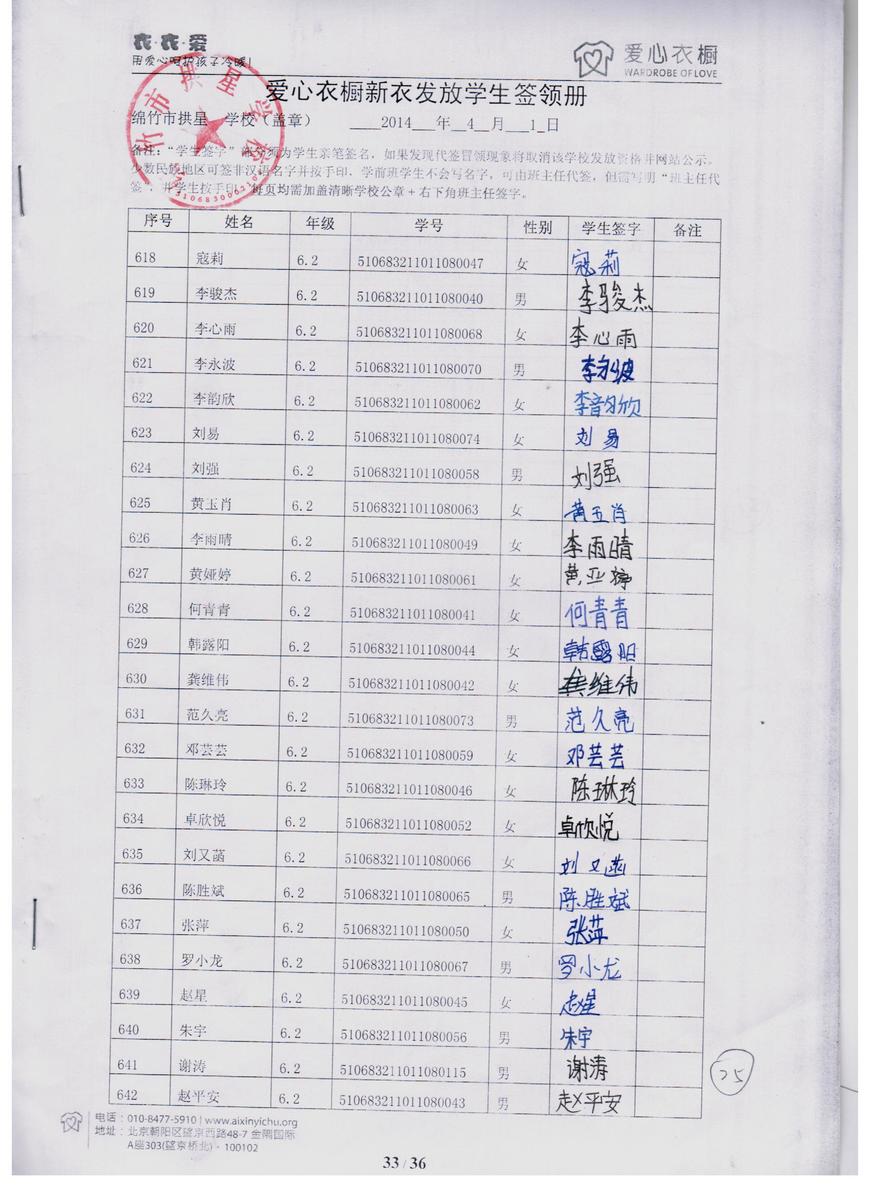 衣·衣·爱
用爱心呵护孩子冷暖!
爱心衣橱
WARDROBE OF LOVE
爱心衣橱新衣发放学生签领册
绵竹市拱星 学校（盖章） 2014 年 4 月 1 日
竹市拱星学校
备注：“学生签字”必须为学生亲笔签名，如果发现代签冒领现象将取消该学校发放资格并网站公示。
少数民族地区可签非汉语名字并按手印、学前班学生不会写名字，可由班主任代签，但需写明“班主任代
签”，并学生按手印。每页均需加盖清晰学校公章+右下角班主任签字。
序号 姓名 年级 学号 性别 学生签字 备注
618 寇莉 6.2 510683211011080047 女 寇莉
619 李骏杰 6.2 510683211011080040 男 李骏杰
620 李心雨 6.2 510683211011080068 女 李心雨
621 李永波 6.2 510683211011080070 男 李永波
622 李韵欣 6.2 510683211011080062 女 李韵欣
623 刘易 6.2 510683211011080074 女 刘易
624 刘强 6.2 510683211011080058 男 刘强
625 黄玉肖 6.2 510683211011080063 女 黄玉肖
626 李雨晴 6.2 510683211011080049 女 李雨晴
627 黄娅婷 6.2 510683211011080061 女 黄亚婷
628 何青青 6.2 510683211011080041 女 何青青
629 韩露阳 6.2 510683211011080044 女 韩露阳
630 龚维伟 6.2 510683211011080042 女 龚维伟
631 范久亮 6.2 510683211011080073 男 范久亮
632 邓芸芸 6.2 510683211011080059 女 邓芸芸
633 陈琳玲 6.2 510683211011080046 女 陈琳玲
634 卓欣悦 6.2 510683211011080052 女 卓欣悦
635 刘又菡 6.2 510683211011080066 女 刘又菡
636 陈胜斌 6.2 510683211011080065 男 陈胜斌
637 张萍 6.2 510683211011080050 女 张萍
638 罗小龙 6.2 510683211011080067 男 罗小龙
639 赵星 6.2 510683211011080045 女 赵星
640 朱宇 6.2 510683211011080056 男 朱宇
641 谢涛 6.2 510683211011080115 男 谢涛
642 赵平安 6.2 510683211011080043 男 赵平安
25
电话：010-8477-5910 | www.aixinyichu.org
地址：北京朝阳区望京西路48-7 金隅国际
A座303(望京桥北)·100102
33 / 36